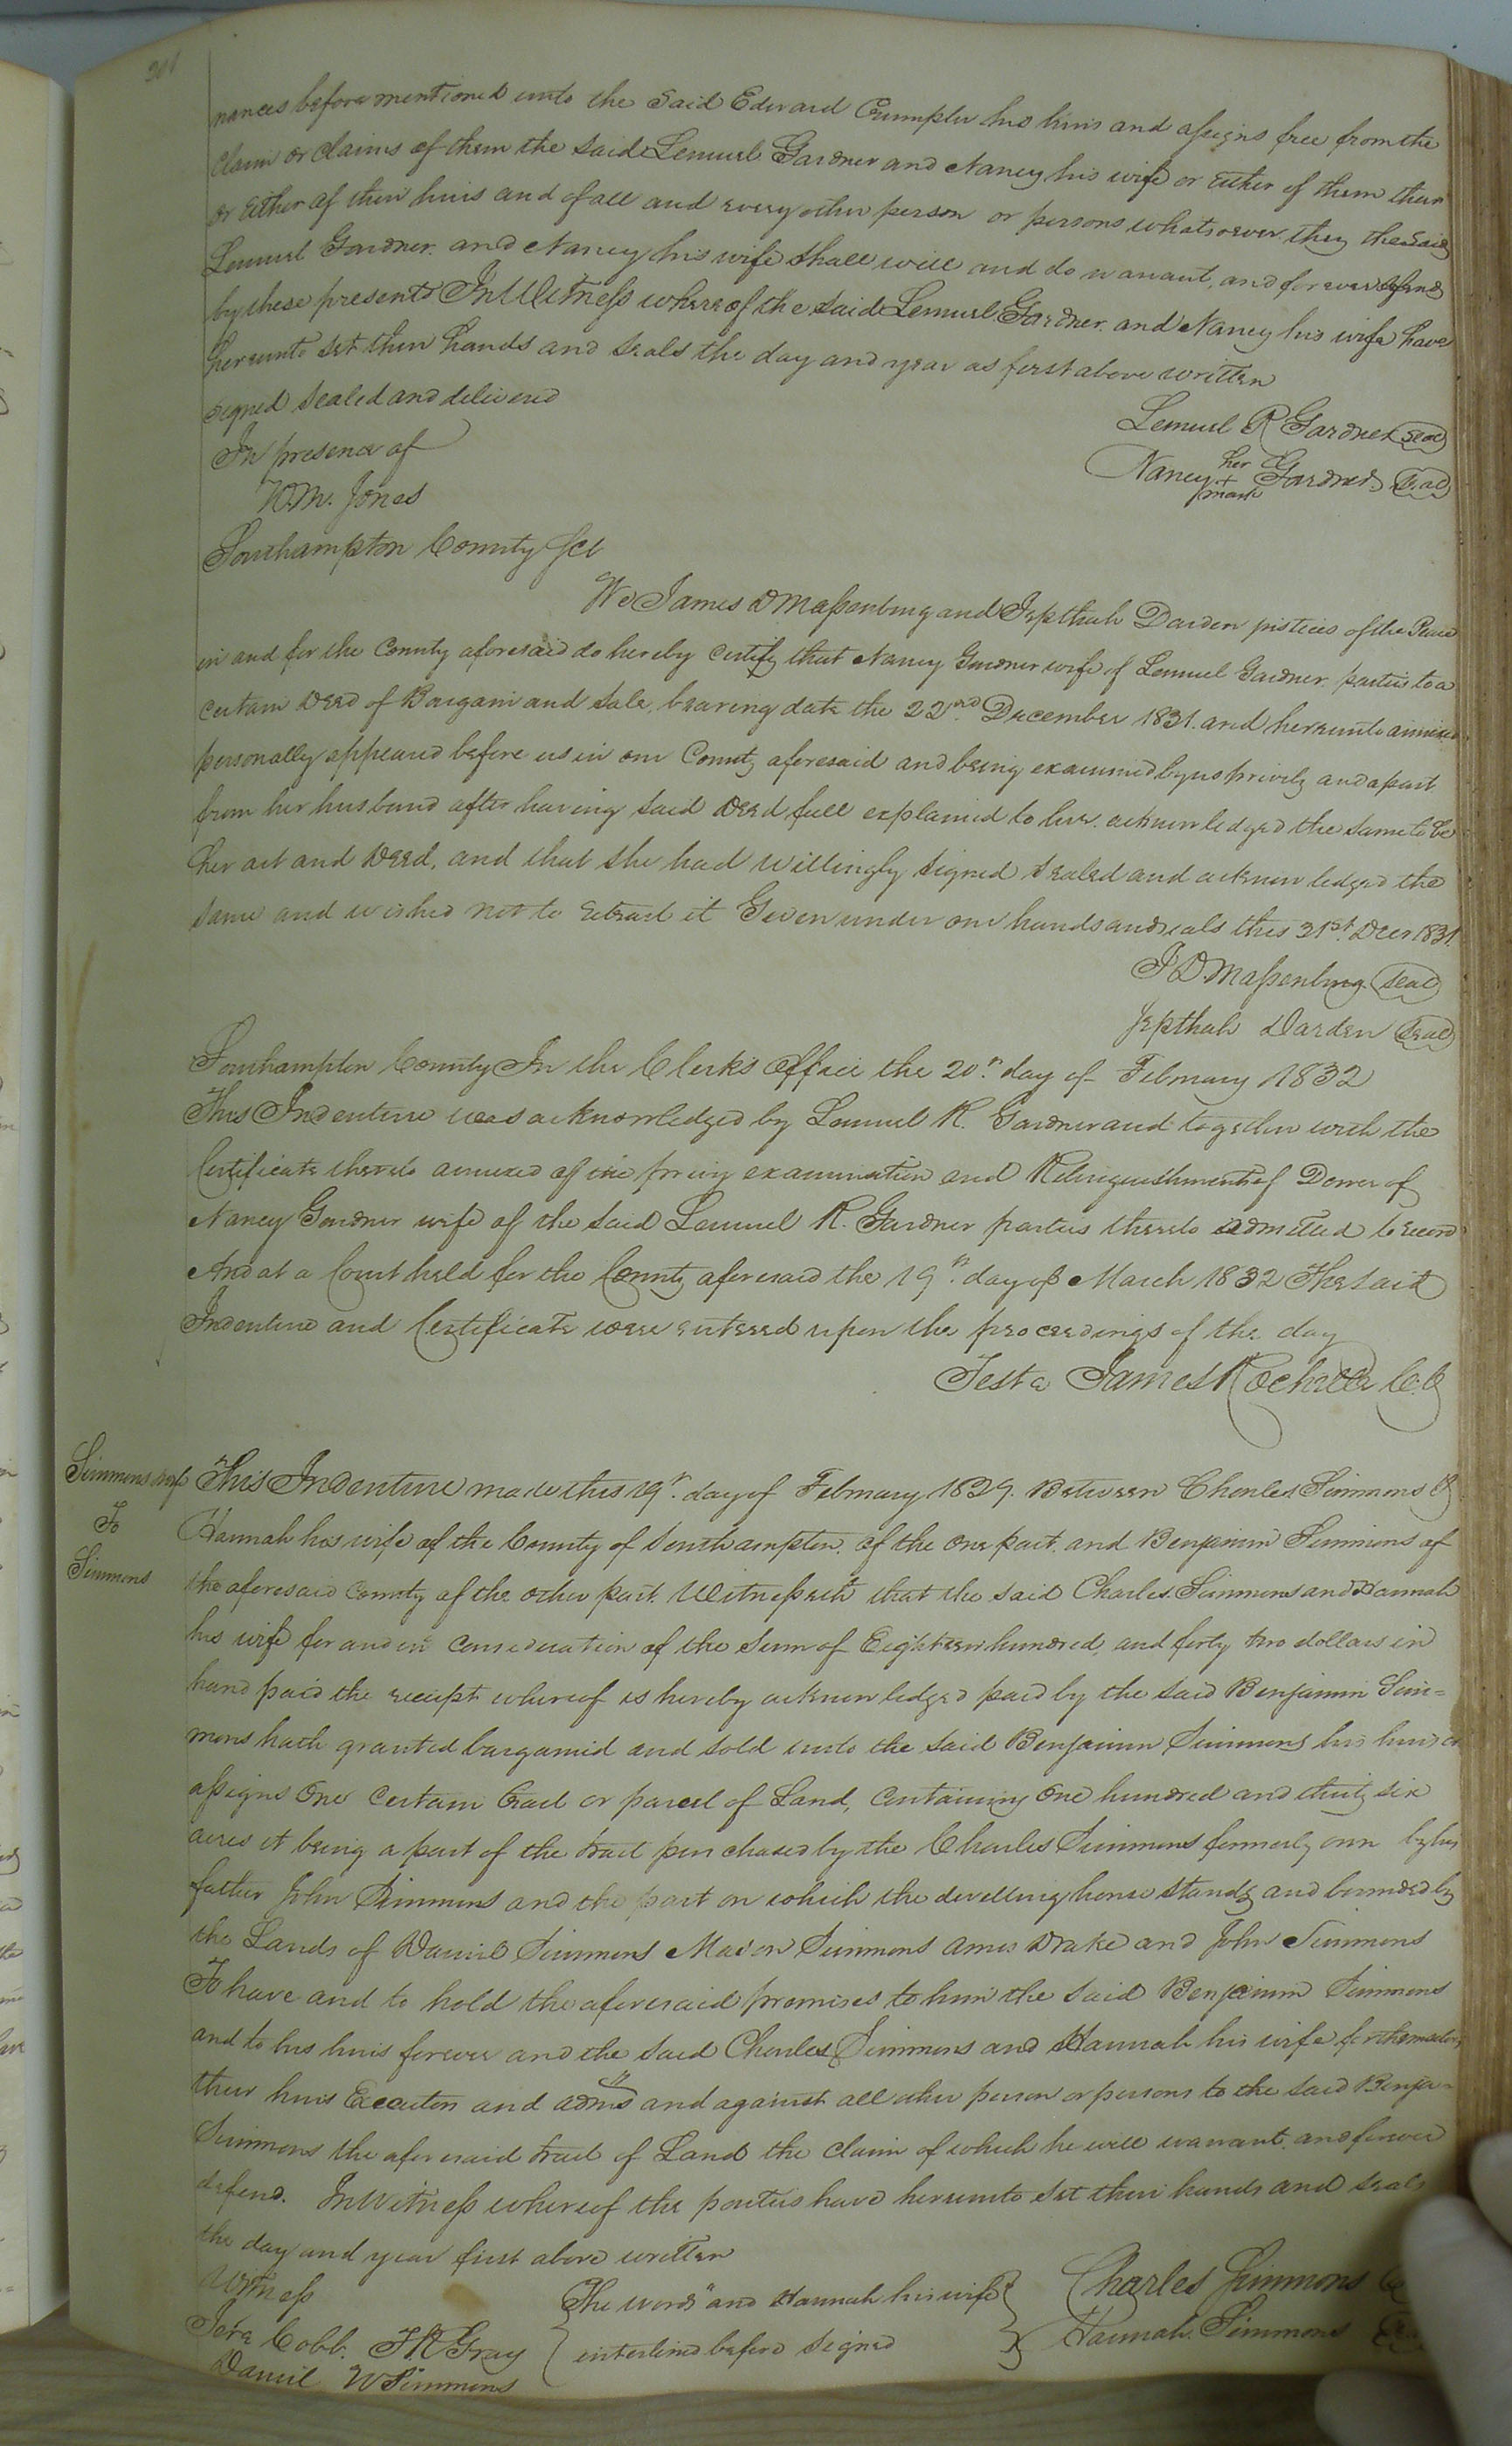 nances before mentioned unto the said Edward Crumpler his heirs and assigns free from the
Claim or Claims of them the said Lemuel Gardner and Nancy his wife or either of them their
or either of their heirs and of all and every other person or persons whatsoever they the said
Lemuel Gardner and Nancy his wife shall will and do warrant, and forever defend
by these presents In Witness whereof the said Lemuel Gardner and Nancy his wife have
hereunto set their hands and seals the day and year as first above written
signed sealed and delivered
In presence of
Lemuel R Gardner seal
Nancy her + mark Gardner seal
W.M. Jones
Southampton County Sct
We James D Massenburg and Jepthah Darden justices of the Peace
in and for the County aforesaid do hereby certify that Nancy Gardner wife of Lemuel Gardner parties to a
certain Deed of Bargain and sale, bearing date the 22nd December 1831. and hereunto annexed
personally appeared before us in our County aforesaid and being examined by us privily and apart
from her husband after having said Deed full explained to her. acknowledged the same to be
her act and Deed, and that she had willingly signed sealed and acknowledged the
same and wished not to retract it Given under our hands and seals this 31st. Decr 1831.
J. D. Massenburg seal
Jepthah Darden seal
Southampton County In the Clerk's Office the 20th day of February 1832
This Indenture was acknowledged by Lemuel R. Gardner and together with the
Certificate thereto annexed of the privy examination and Relinquishment of Dower of
Nancy Gardner wife of the said Lemuel R. Gardner parties thereto admitted to record
And at a Court held for the County aforesaid the 19th day of March 1832 The said
Indenture and Certificate were entered upon the proceedings of the day
Teste James Rochelle C.C
Simmons & wife
To
Simmons
This Indenture made this 19th. day of February 1829. Between Charles Simmons &
Hannah his wife of the County of Southampton. of the one part. and Benjamin Simmons of
the aforesaid County of the other part. Witnesseth that the said Charles Simmons and Hannah
his wife for and in consideration of the sum of Eighteen hundred, and forty two dollars in
hand paid the receipt whereof is hereby acknowledged paid by the said Benjamin Sim=
mons hath granted bargained and sold unto the said Benjamin Simmons his heirs or
assigns One certain tract or parcel of Land, containing One hundred and thirty six
acres it being a part of the tract purchased by the Charles Simmons formerly own by his
father John Simmons and the part on which the dwelling house stands and bounded by
the Lands of Daniel Simmons Mason Simmons Amos Drake and John Simmons
To have and to hold the aforesaid promises to him the said Benjamin Simmons
and to his heirs forever and the said Charles Simmons and Hannah his wife for themselves
their heirs Executors and adms and against all other person or persons to the said Benja=
Simmons the aforesaid tract of Land the claim of which he will warrant. and forever
defend. In Witness whereof the parties have hereunto set their hands and seals
the day and year first above written
Witness
Jere Cobb. J. R Gray
Daniel W Simmons
The words "and Hannah his wife"
interlined before signed
Charles Simmons
Hannah Simmons